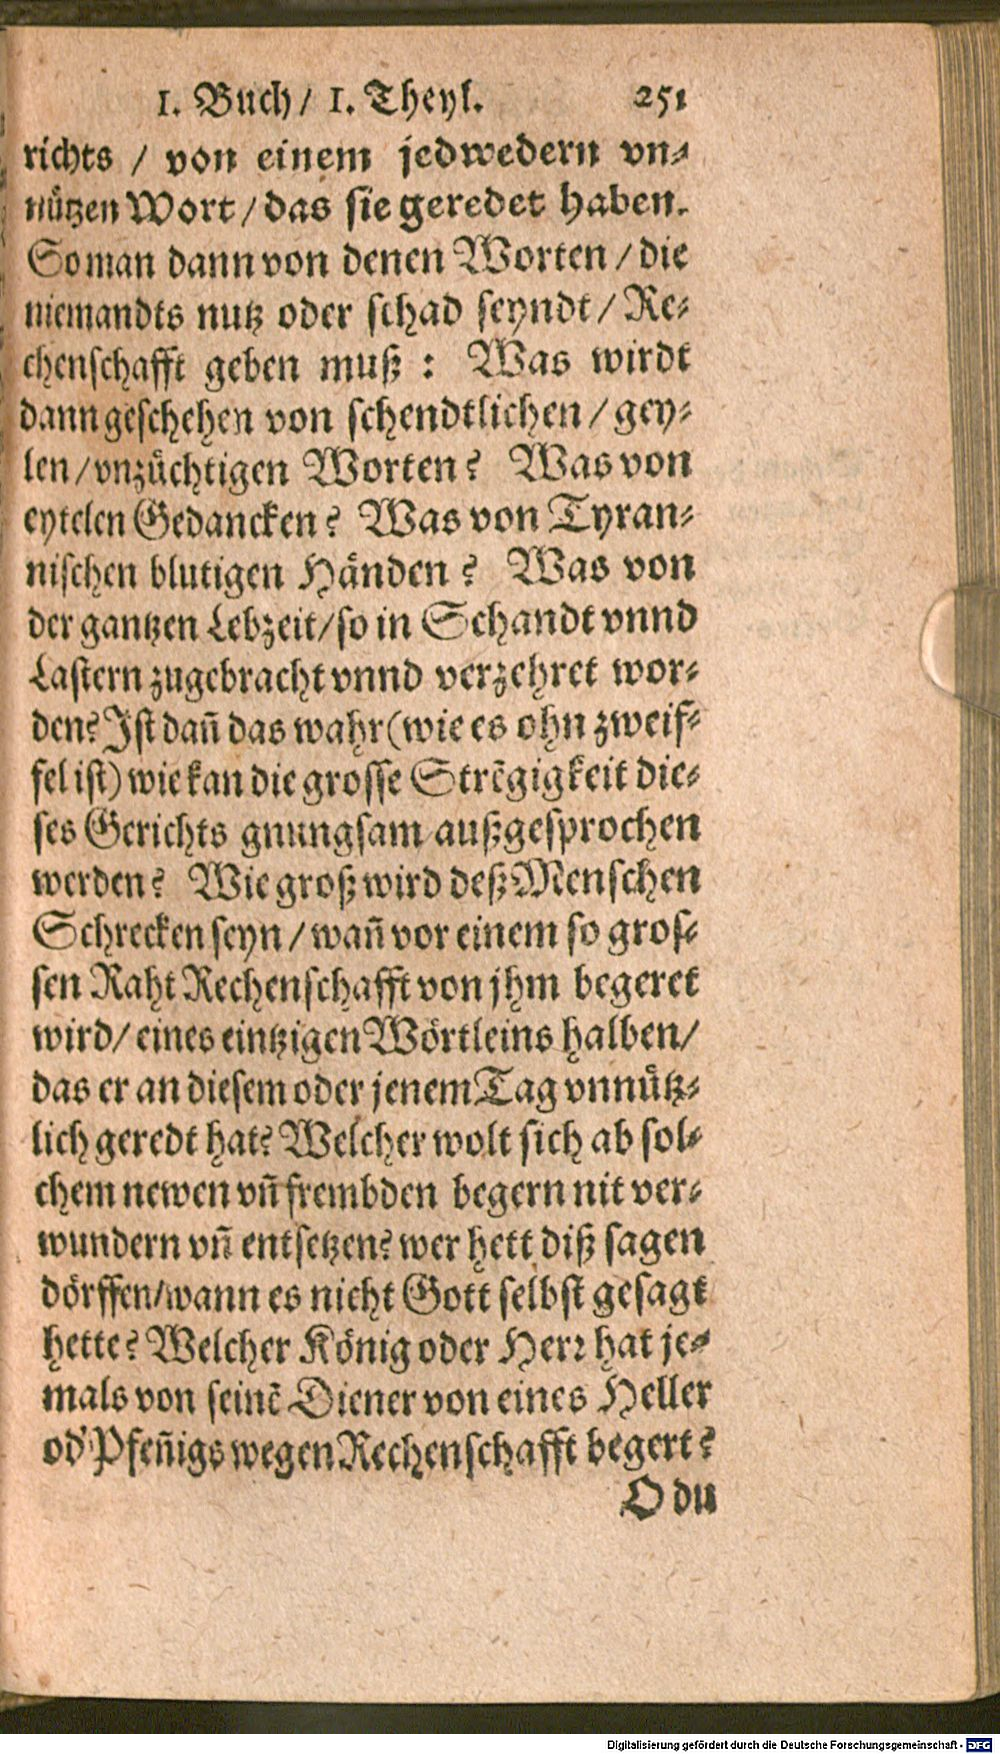 1. Buch/ 1. Theyl. 251
richts / von einem jedwedern vn-
nützen Wort / das sie geredet haben.
So man dann von denen Worten / die
niemandts nutz oder schad seyndt / Re-
chenschafft geben muß : Was wirdt
dann geschehen von schendtlichen / gey-
len / vnzüchtigen Worten? Was von
eytelen Gedancken? Was von Tyran-
nischen blutigen Händen? Was von
der gantzen Lebzeit / so in Schandt vnnd
Lastern zugebracht vnnd verzehret wor-
den? Ist dañ das wahr (wie es ohn zweif-
fel ist) wie kan die grosse Strẽgigkeit die-
ses Gerichts gnungsam außgesprochen
werden? Wie groß wird deß Menschen
Schrecken seyn / wañ vor einem so gros-
sen Raht Rechenschafft von jhm begeret
wird / eines eintzigen Wörtleins halben /
das er an diesem oder jenem Tag vnnütz-
lich geredt hat? Welcher wolt sich ab sol-
chem newen vñ frembden begern nit ver-
wundern vñ entsetzen? wer hett diß sagen
dörffen / wann es nicht Gott selbst gesagt
hette? Welcher König oder Herr hat je-
mals von seinẽ Diener von eines Heller
od' Pfeñigs wegen Rechenschafft begert?
O du
Digitalisierung gefördert durch die Deutsche Forschungsgemeinschaft - DFG